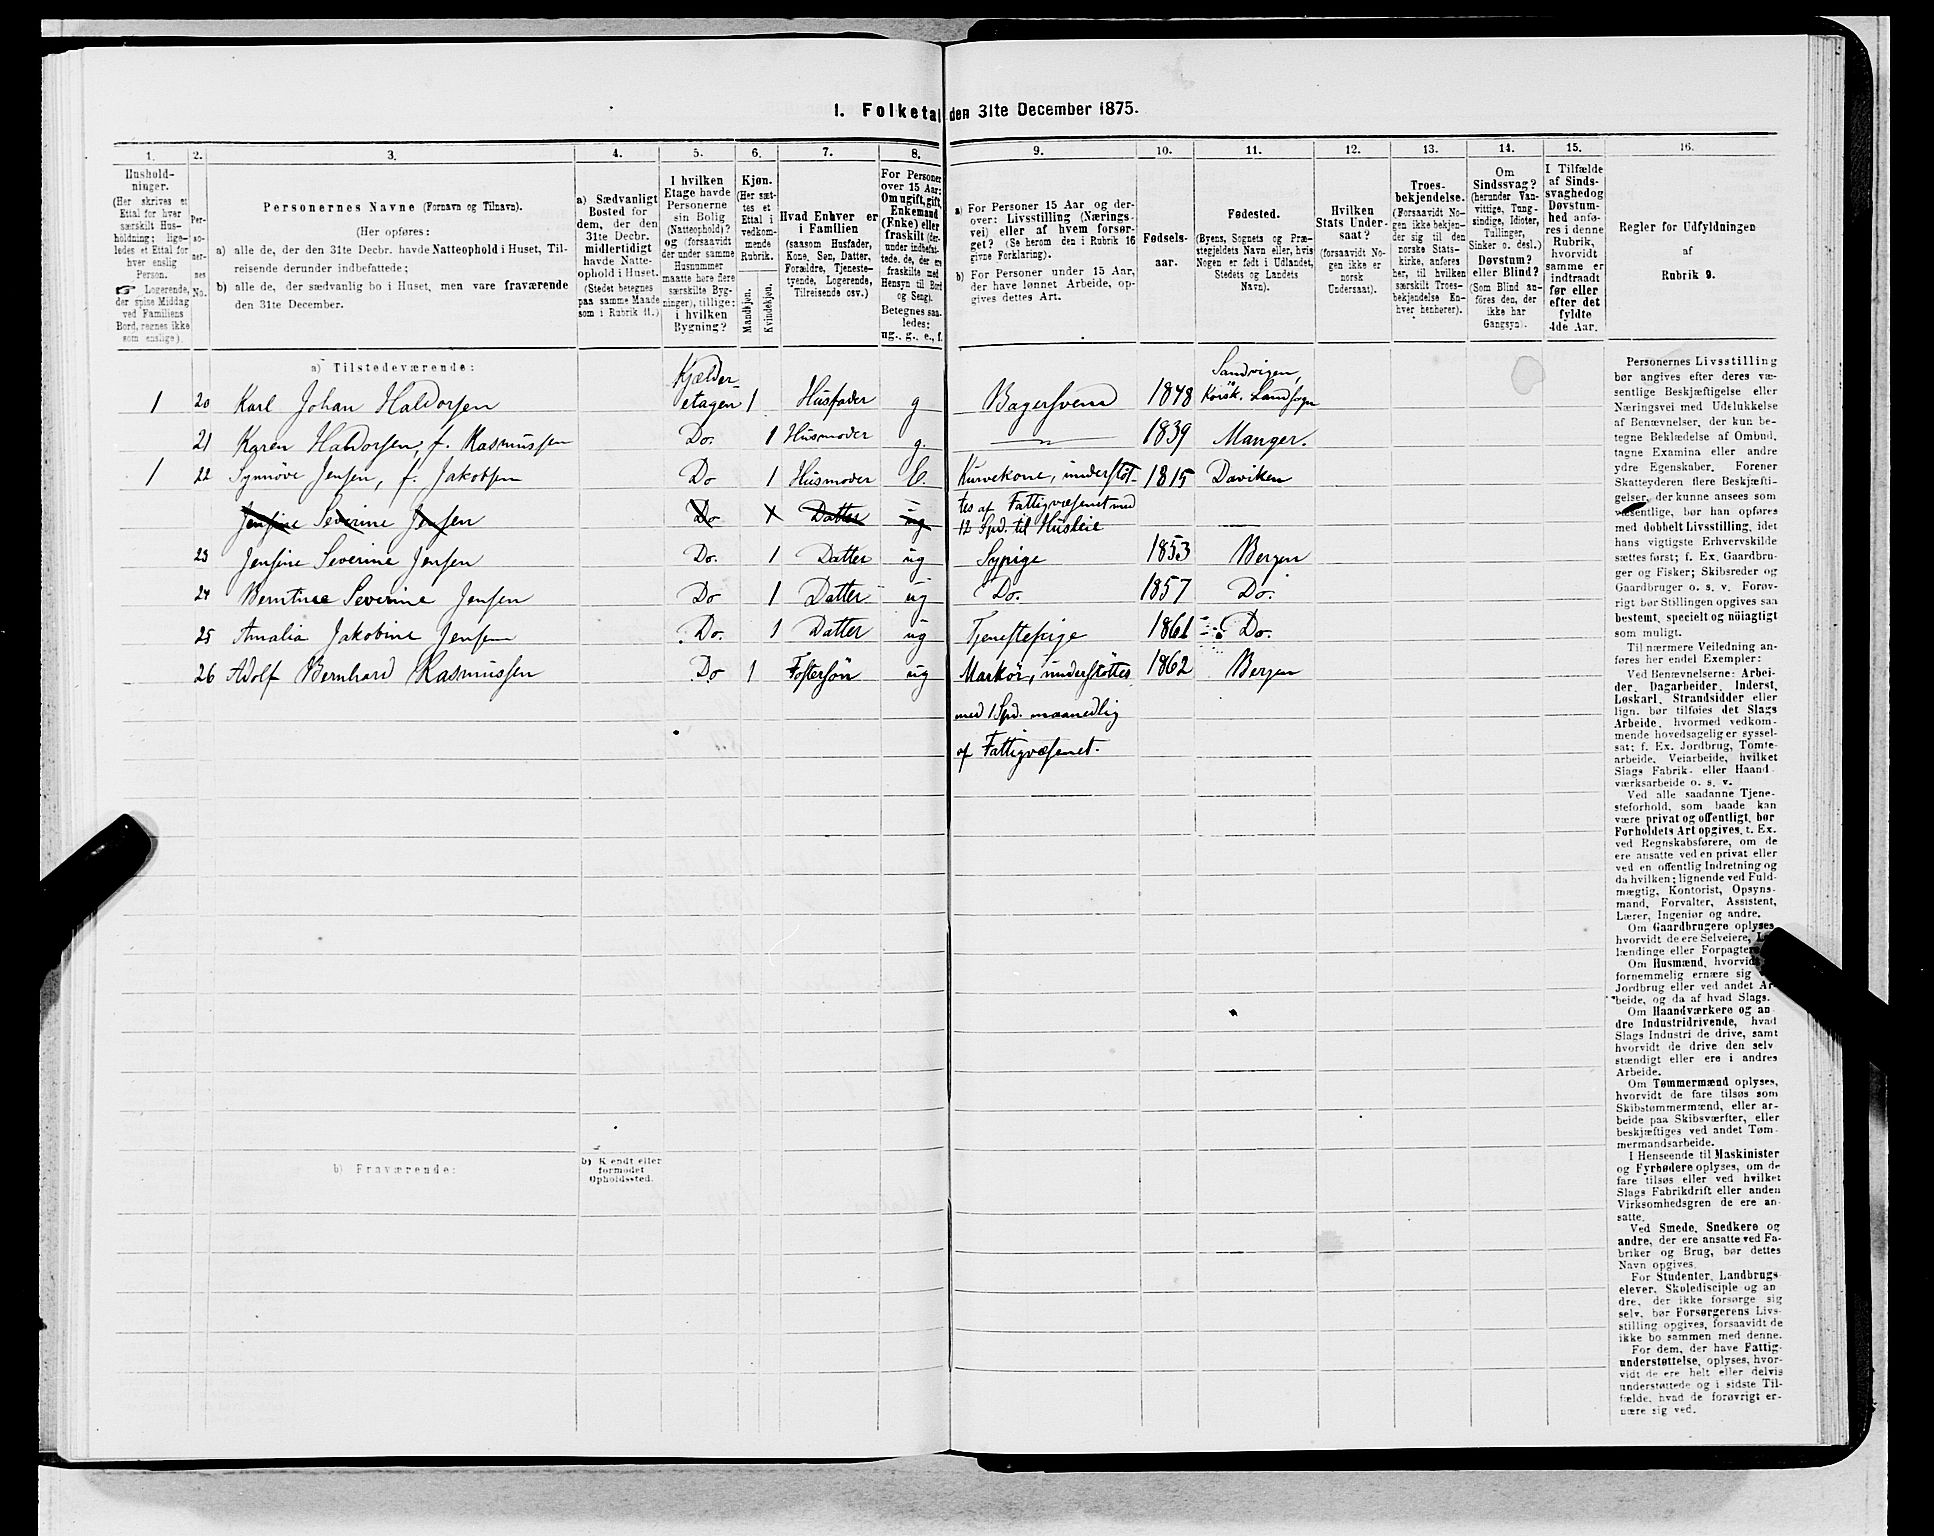 1. Folketal den 31te December 1875.
1. 2. 3. 4. 5. 6. 7. 8. 9. 10. 11. 12. 13. 14. 15. 16.
Hushold-
ninger.
(Her skrives et
Ettal for hver
særskilt Hus-
holdning; lige-
ledes et Ettal for
hver enslig
Person.
☞ Logerende,
der spise Middag
ved Familiens
Bord, regnes ikke
som enslige).
Per-
so-
ner-
nes
No.
Personernes Navne (Fornavn og Tilnavn).
(Her opføres:
a) alle de, der den 31te Decbr. havde Natteophold i Huset, Til-
reisende derunder indbefattede;
b) alle de, der sædvanlig bo i Huset, men vare fraværende
den 31te December.
a) Sædvanligt
Bosted for
dem, der den
31te Decbr.
midlertidigt
havde Natte-
ophold i Huset.
(Stedet betegnes
paa samme Maade
som i Rubrik 11.)
I hvilken
Etage havde
Personerne
sin Bolig
(Natteophold)?
og (forsaavidt
der under samme
Husnummer
maatte høre flere
særskilte Byg-
ninger), tillige:
i hvilken
Bygning?
Kjøn.
(Her sæt-
tes et
Ettal i
vedkom-
mende
Rubrik.
Mandkjøn.
Kvindekjøn.
Hvad Enhver er
i Familien
(saasom Husfader,
Kone, Søn, Datter,
Forældre, Tjeneste-
tyende, Logerende,
Tilreisende osv.)
For Personer
over 15 Aar:
Om ugift, gift,
Enkemand
(Enke) eller
fraskilt (der-
under indbefat-
tede. de, der ere
fraskilte med
Hensyn til Bord
og Seng).
Betegnes saa-
ledes:
ug., g., e., f.
a) For Personer 15 Aar og der-
over: Livsstilling (Nærings-
vei) eller af hvem forsør-
get? (Se herom den i Rubrik 16
givne Forklaring).
b) For Personer under 15 Aar,
der have lønnet Arbeide, op-
gives dettes Art.
Fødsels-
aar.
Fødested.
(Byens, Sognets og Præ-
stegjeldets Navn eller, hvis
Nogen er født i Udlandet,
Stedets og Landets
Navn).
Hvilken
Stats Under-
saat?
(forsaavidt No-
gen ikke er
norsk
Undersaat).
Troes-
bekjendelse.
(Forsaavidt No-
gen ikke bekjen-
der sig til den
norske Stats-
kirke, anføres
her, til hvilken
særskilt Troes-
bekjendelse En-
hver henhører).
Om
Sindssvag?
(herunder Van-
vittige, Tung-
sindige, Idioter,
Tullinger,
Sinker o. desl.)
Døvstum?
eller Blind?
(Som Blind an-
føres den, der
ikke har
Gangsyn).
I Tilfælde
af Sinds-
svaghedog
Døvstum-
hed anfø-
res i denne
Rubrik,
hvorvidt
samme er
indtraadt
før eller
efter det
fyldte
4de Aar.
Regler for Udfyldningen
af
Rubrik 9.
a) Tilstedeværende:
1 20 Karl Johan Haldorsen Kjælder-etagen 1 Husfader g Bagersvend 1848 Sandvigen, Korsk. Landsogn
21 Karen Haldorsen, f. Rasmussen Do. 1 Husmoder g. —"— 1839 Manger.
1 22 Synnøve Jensen, f. Jakobsen Do 1 Husmoder E. Kurvekone, understøt- 1815 Daviken
tes af Fattigvæsenet med
Jensine Severine Jensen Do Datter ug 12 Spd. til Husleie
23 Jensine Severine Jensen Do. 1 Datter ug Sypige 1853 Bergen
24 Berntine Severine Jensen Do 1 Datter ug Do. 1857 Do.
25 Amalia Jakobine Jensen Do. 1 Datter ug Tjenestepige 1861 Do.
26 Adolf Bernhard Rasmussen Do 1 Fostersøn ug Markør, understøttes 1862 Bergen
med 1 Spd. maanedlig
af Fattigvæsenet.
b) Fraværende:
b) Kjendt eller
formodet
Opholdssted.
Personernes Livsstilling
bør angives efter deres væ-
sentlige Beskjæftigelse eller
Næringsvei med Udelukkelse
af Benævnelser, der kun be-
tegne Beklædelse af Ombud,
tagne Examina eller andre
ydre Egenskaber. Forener
Skatteyderen flere Beskjæfti-
gelser, der kunne ansees som
væsentlige, bør han opføres
med dobbelt Livsstilling, idet
hans vigtigste Erhvervskilde
sættes først; f. Ex. Gaardbru-
ger og Fisker; Skibsreder og
Gaardbruger o. s. v. Forøv-
rigt bør Stillingen opgives saa
bestemt, specielt og nöiagtigt
som muligt.
Til nærmere Veiledning an-
føres her endel Exempler:
Ved Benævnelserne: Arbei-
der, Dagarbeider, Inderst,
Løskarl, Strandsidder eller
lign. bør tilføies det Slags
Arbeide, hvormed vedkom-
mende hovedsagelig er syssel-
sat; f. Ex. Jordbrug, Tomte-
arbeide, Veiarbeide, hvilket
Slags Fabrik- eller Haand-
værksarbeide o. s. v.
Ved alle saadanne Tjene-
steforhold, som baade kan
være privat og offentligt, bør
Forholdets Art opgives, t. Ex.
ved Regnskabsførere, om de
ere ansatte ved en privat eller
ved en offentlig Indretning og
da hvilken; lignende ved Fuld-
mægtig, Kontorist, Opsyns-
mand, Forvalter, Assistent,
Lærer, Ingeniør og andre.
Om Gaardbrugere oplyses,
hvorvidt de ere Selveiere,
lændinge eller Forpagtere.
Om Husmænd, hvorvidt
fornemmelig ernære sig
Jordbrug eller ved andet Ar-
beide, og da af hvad Slags.
Om Haandværkere og an-
dre Industridrivende, hvad
Slags Industri de drive, samt
hvorvidt de drive den selv-
stændigt eller ere i andres
Arbeide.
Om Tømmermænd oplyses,
hvorvidt de fare tilsøs som
Skibstømmermænd, eller ar-
beide paa Skibsværfter, eller
beskjæftiges ved andet Tøm-
mermandsarbeide.
I Henseende til Maskinister
og Fyrbødere oplyses, om de
fare tilsøs eller ved hvilket
Slags Fabrikdrift eller anden
Virksomhedsgren de ere an-
satte.
Ved Smede, Snedkere og
andre, der ere ansatte ved Fa-
briker og Brug, bør dettes
Navn opgives.
For Studenter, Landbrugs-
elever, Skoledisciple og an-
dre, der ikke forsørge sig
selv, bør Forsørgerens Livs-
stilling opgives, forsaavidt de
ikke bo sammen med denne.
For dem, der have Fattig-
understøttelse, oplyses, hvor-
vidt de ere helt eller delvis
understøttede og i sidste Til-
fælde, hvad de forøvrigt er-
nære sig ved.